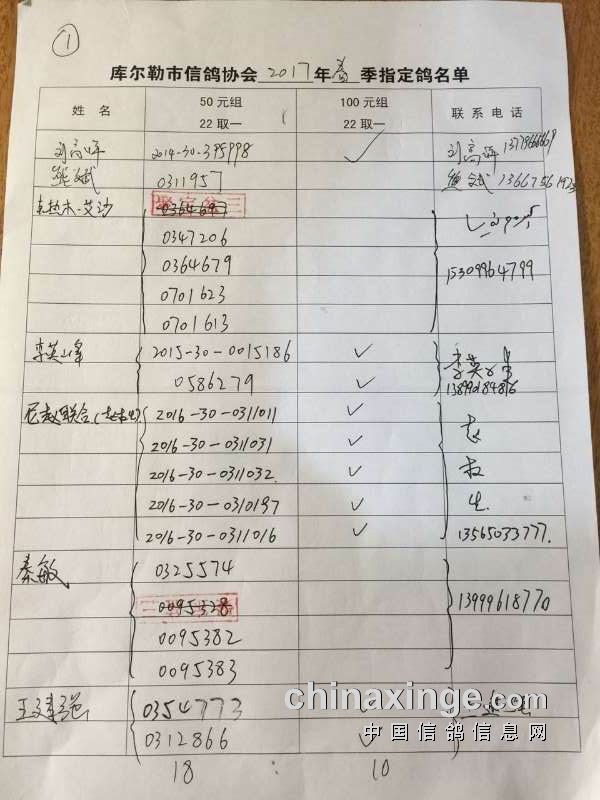 ①
库尔勒市信鸽协会 2017 年 春 季指定鸽名单
姓 名 50元组 22取一 100元组 22取一 联系电话
刘高峰 2014-30-395998 ✓ 刘高峰
熊斌 0311957 熊斌
克热木·艾沙 0364697
0347206
0364679 15309964799
0701623
0701613
李英峰 2015-30-0015186 ✓ 李英峰
0586279 ✓ 13899184816
联合 2016-30-0311011 ✓
2016-30-0311031 ✓
2016-30-0311032 ✓
2016-30-0310197 ✓ 生
2016-30-0311016 ✓ 13565033777.
秦敏 0325574
0095328 13999618770
0095382
0095383
王建强 0354773
0312866 ✓
18 : 10
chinaxinge.com
中国信鸽信息网